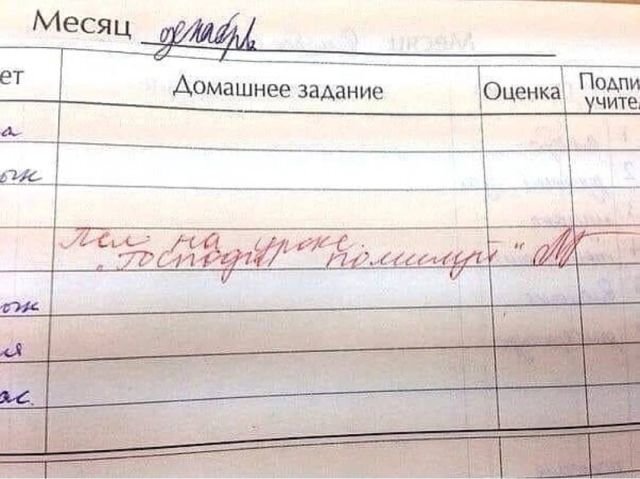 Месяц декабрь
ет Домашнее задание Оценка Подпи
учите
а
Пел на уроке
"Господи помилуй"